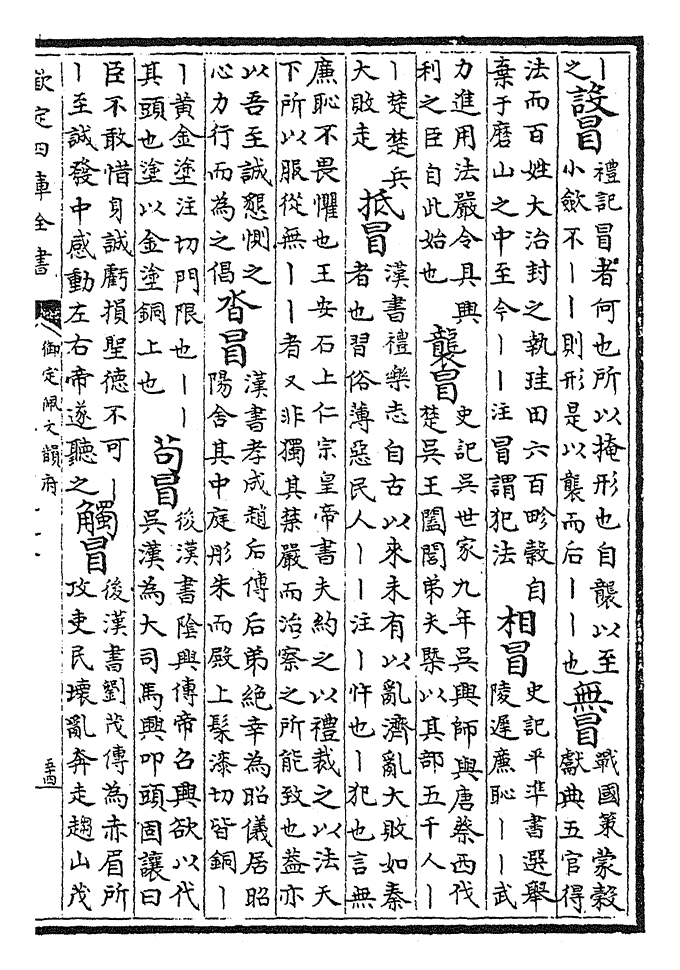 丨
之
設冒
禮記冒者何也所以掩形也自襲以至
小斂不丨丨則形是以襲而后丨丨也
無冒
戰國策蒙穀
獻典五官得
法而百姓大治封之執珪田六百畛穀自
棄于磨山之中至今丨丨注冒謂犯法
相冒
史記平準書選舉
陵遲廉恥丨丨武
力進用法嚴令具興
利之臣自此始也
襲冒
史記吳世家九年吳興師與唐蔡西伐
楚吳王闔閭弟夫槩以其部五千人丨
丨楚楚兵
大敗走
抵冒
漢書禮樂志自古以來未有以亂濟亂大敗如秦
者也習俗薄惡民人丨丨注丨忤也丨犯也言無
廉恥不畏懼也王安石上仁宗皇帝書夫約之以禮裁之以法天
下所以服從無丨丨者又非獨其禁嚴而治察之所能致也蓋亦
以吾至誠懇惻之
心力行而為之倡
沓冒
漢書孝成趙后傳后弟絶幸為昭儀居昭
陽舍其中庭彤朱而殿上髹漆切皆銅丨
丨黃金塗注切門限也丨丨
其頭也塗以金塗銅上也
苟冒
後漢書陰興傳帝召興欲以代
吳漢為大司馬興叩頭固讓曰
臣不敢惜身誠虧損聖德不可丨
丨至誠發中感動左右帝遂聽之
觸冒
後漢書劉茂傳為赤眉所
攻吏民壞亂奔走趨山茂
欽定四庫全書
御定佩文韻府